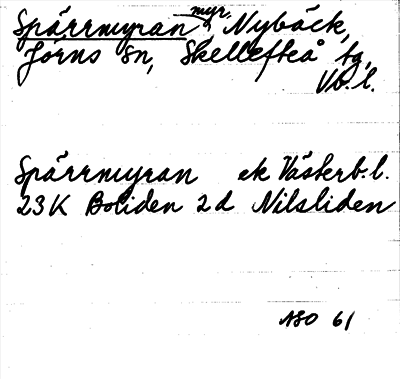 Spärrmyran, myr, Nybäck,
Jörns sn, Skellefteå tg,
Vb. l.
Spärrmyran ek Västerb. l.
23K Boliden 2d Nilsliden
ASO 61